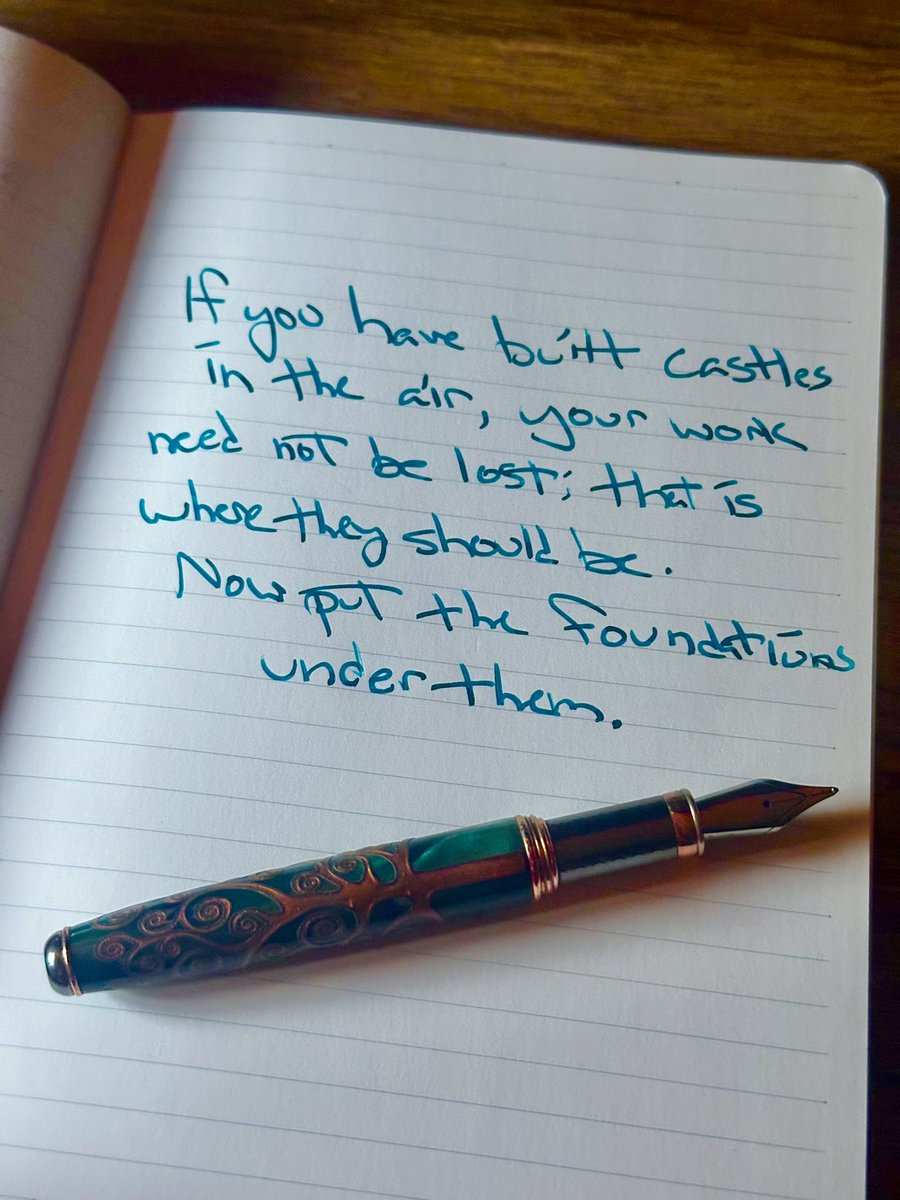 If you have built castles
in the air, your work
need not be lost; that is
where they should be.
Now put the foundations
under them.